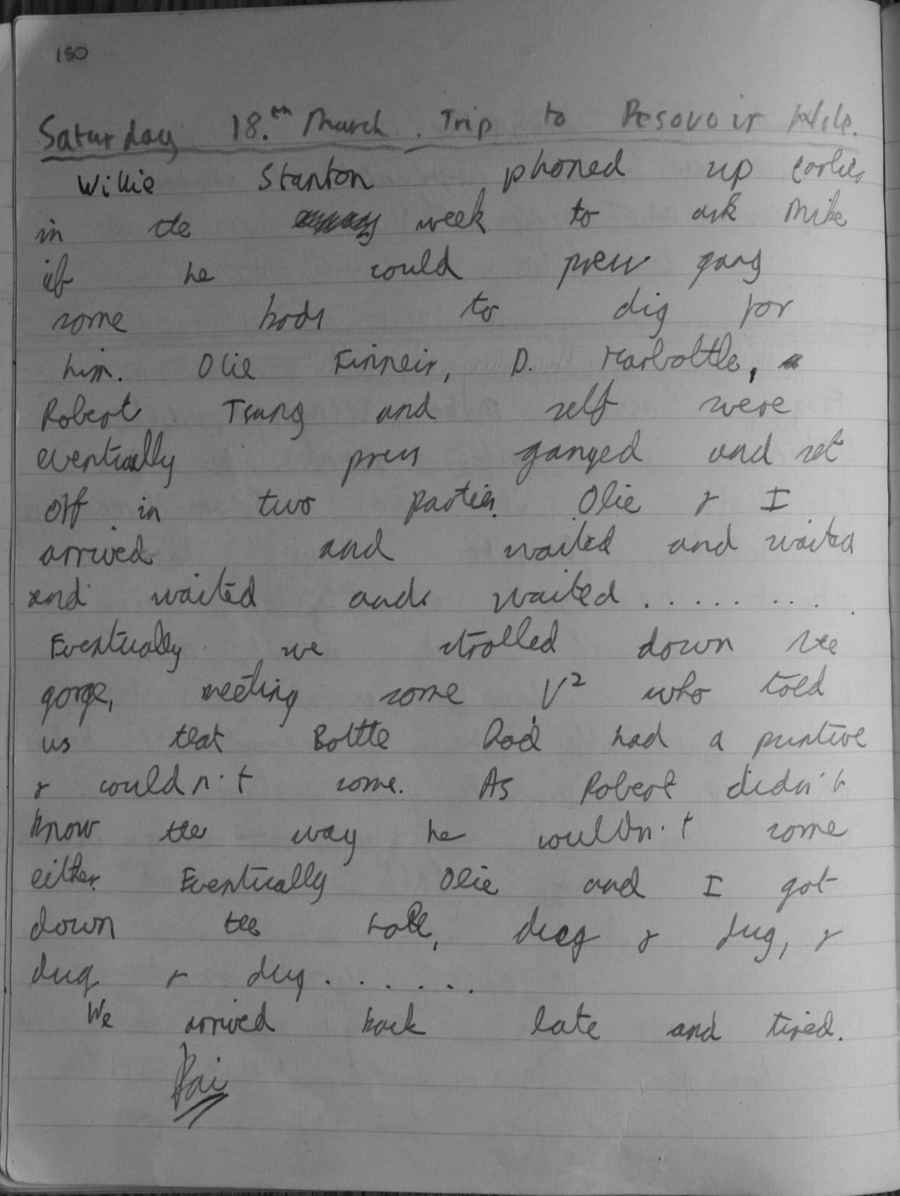 150
Saturday 18.th March. Trip to Resovoir Hole.
Willie Stanton phoned up earlier
in the week to ask Mike
if he could press gang
some bods to dig for
him. Olie Finneir, D. Harbottle,
Robert Tsang and self were
eventually press ganged and set
off in two parties. Olie & I
arrived and waited and waited
and waited and waited.........
Eventually we strolled down the
gorge, meeting some V² who told
us that Bottle had had a puntive
& couldn't come. As Robert didn't
know the way he couldn't come
either. Eventually Olie and I got
down the hole, dug & dug, &
dug & dug.......
We arrived back late and tired.